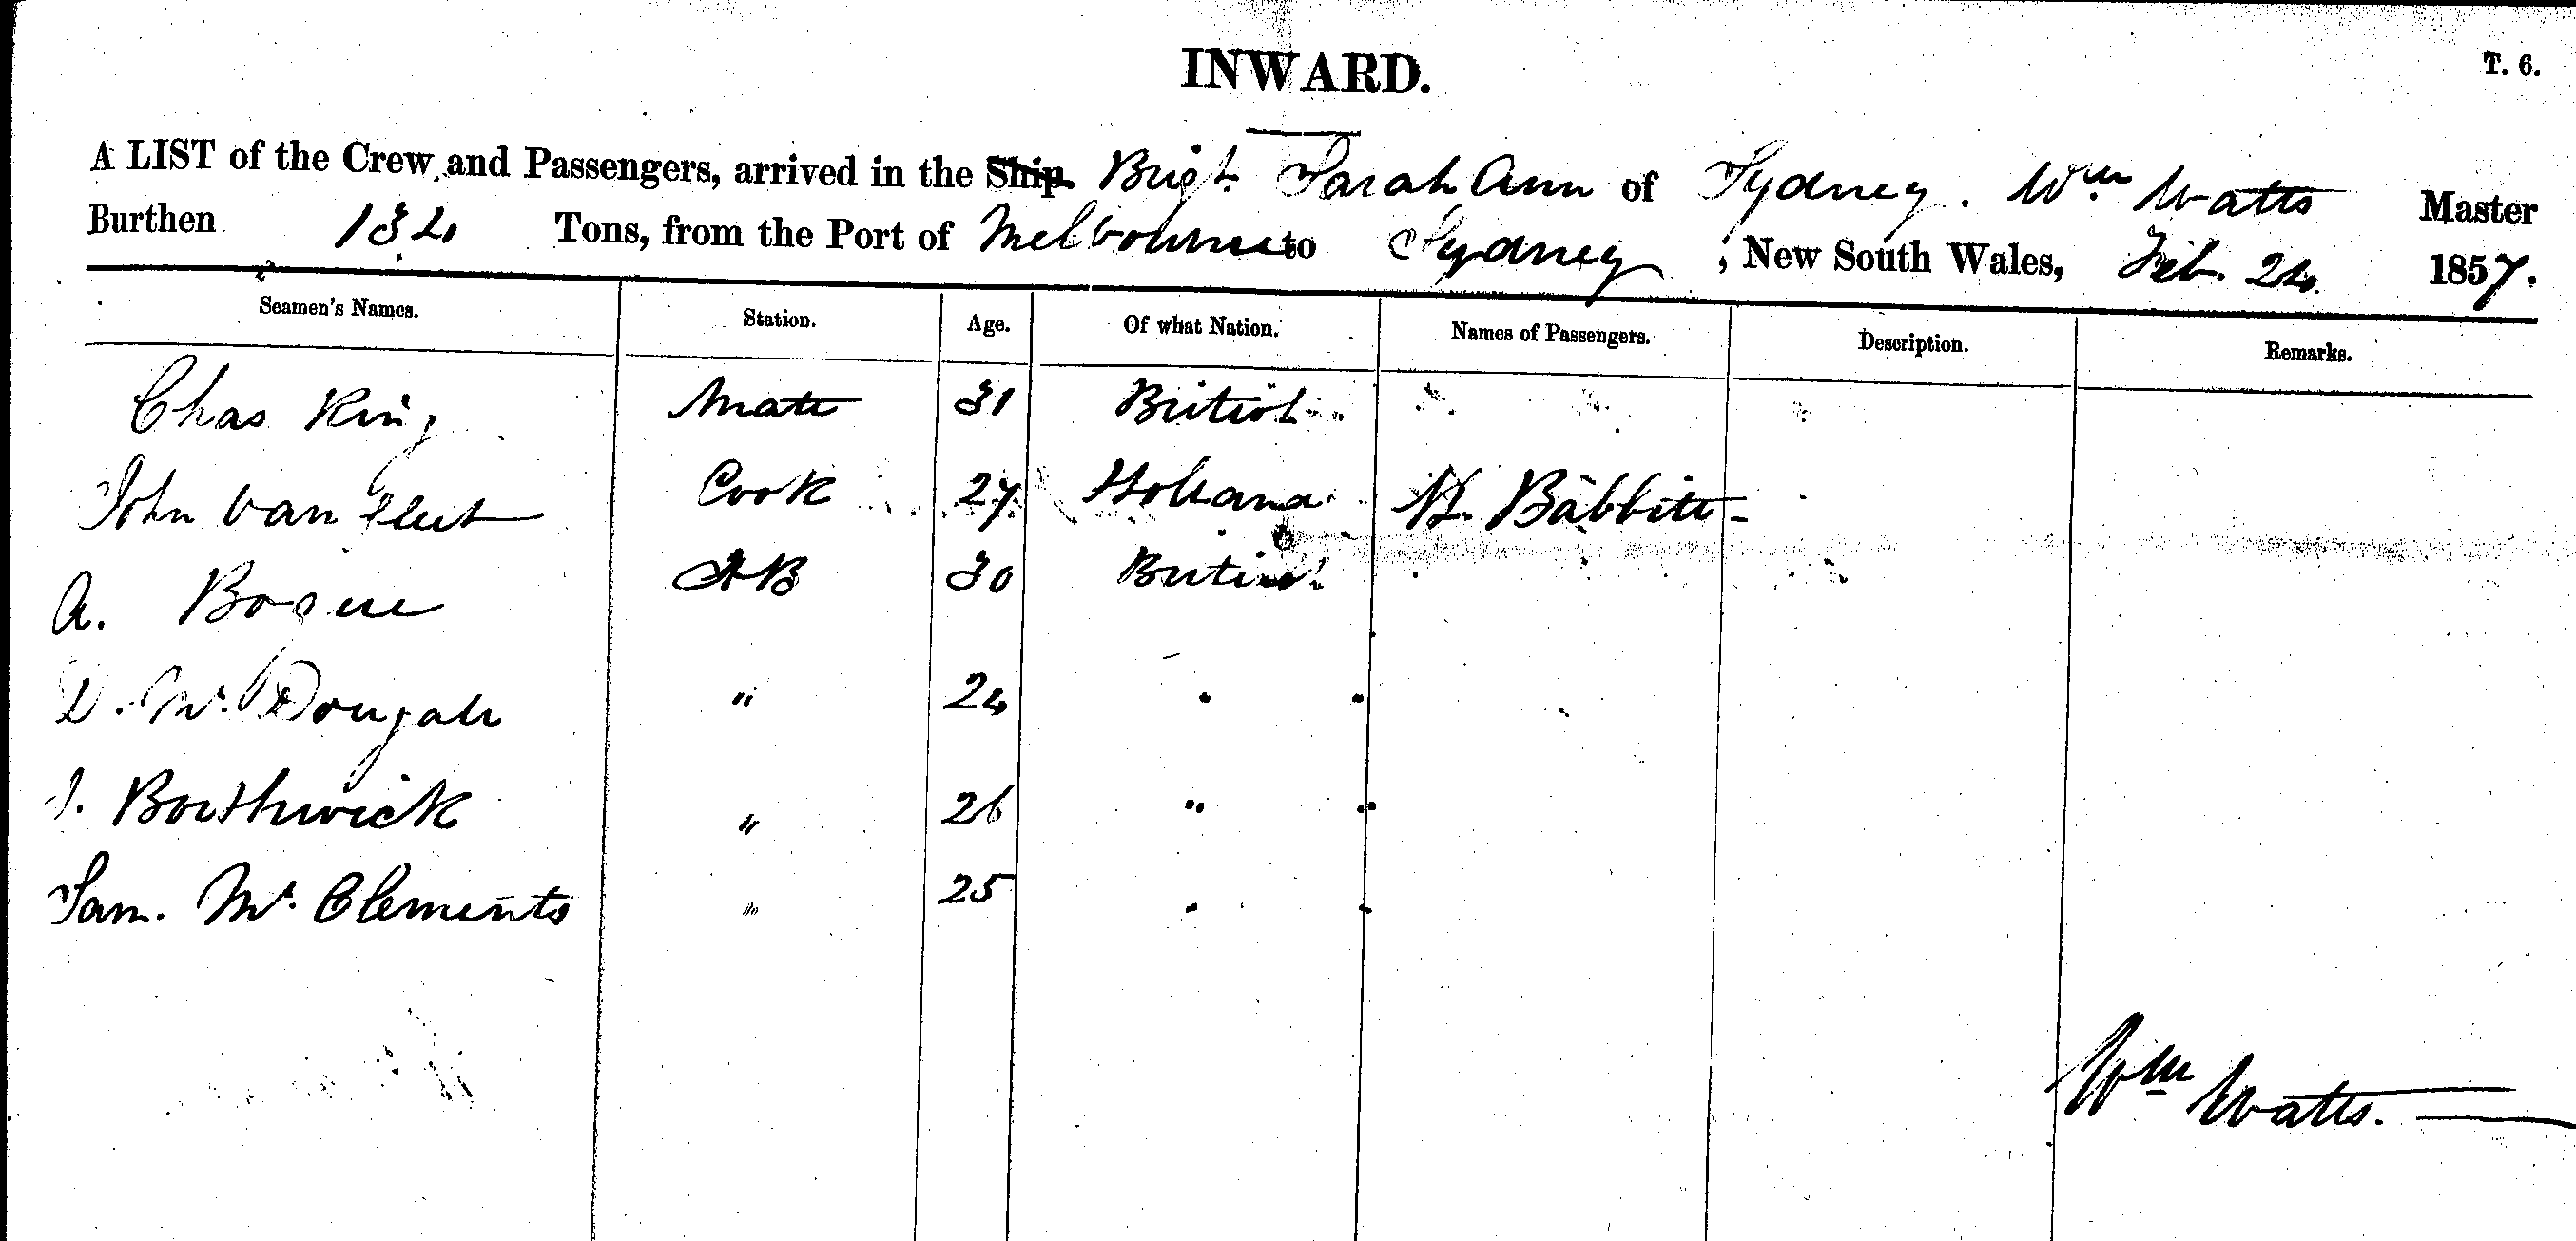 INWARD.
T. 6.
A LIST of the Crew and Passengers, arrived in the Ship Brigt. Sarah Ann of Sydney. Wm Watts Master
Burthen 134 Tons, from the Port of Melbourne to Sydney, New South Wales, Feb. 24 1857.
Seamen's Names. Station. Age. Of what Nation. Names of Passengers. Description. Remarks.
Chas King Mate 31 British
John Van Cook 27 Holland Babbitt
A. Bogue AB 30 British
D. Mc. Dougall " 24 " "
Borthwick " 26 " "
Sam. Mc. Clements " 25 " "
Wm Watts.